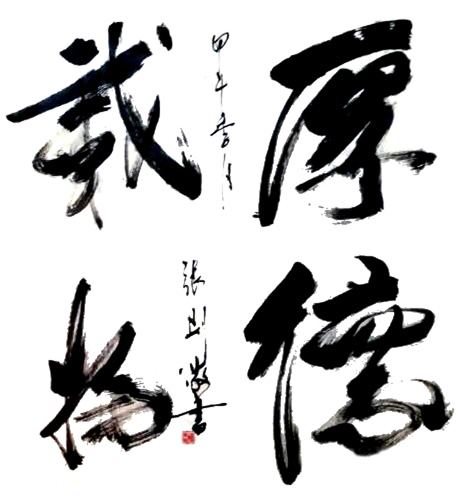 厚德
載物
甲午春月
張書